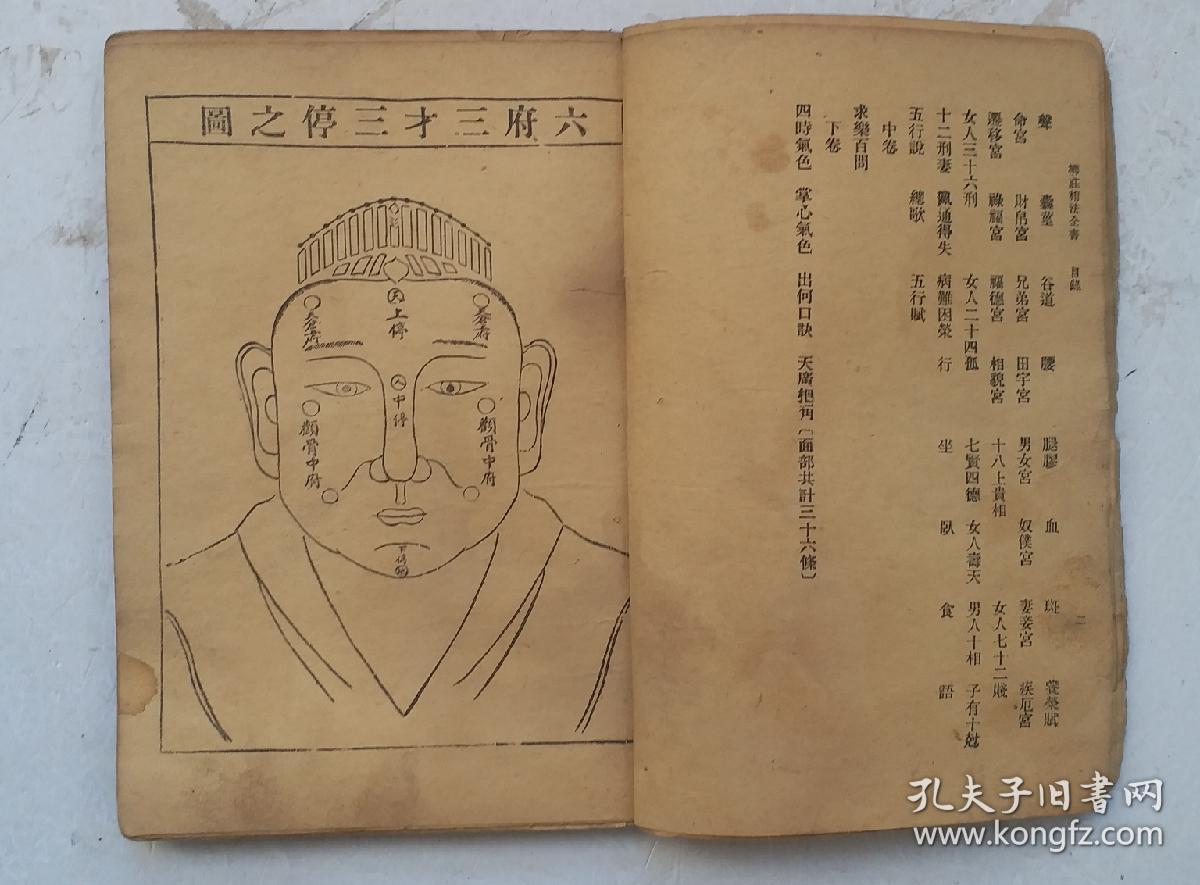 柳莊相法全書 目錄 二
聲 囊莖 谷道 腰 腿膝 血 斑 養榮賦
命宮 財帛宮 兄弟宮 田宅宮 男女宮 奴僕宮 妻妾宮 疾厄宮
遷移宮 祿福宮 福德宮 相貌宮 十八上貴相 女人七十二賤
女人三十六刑 女人二十四孤 七賢四德 女人壽夭 男人十相 子有十尅
十二刑妻 窮通得失 病難因榮 行 坐 臥 食 語
五行說 總歌 五行賦
中卷
永樂百問
下卷
四時氣色 掌心氣色 出何口訣 天廣地闊〔面部共計三十六條〕
六府三才三停之圖
天 上停
天倉上府
天倉上府
人 中停
顴骨中府
顴骨中府
下停
孔夫子旧书网
www.kongfz.com